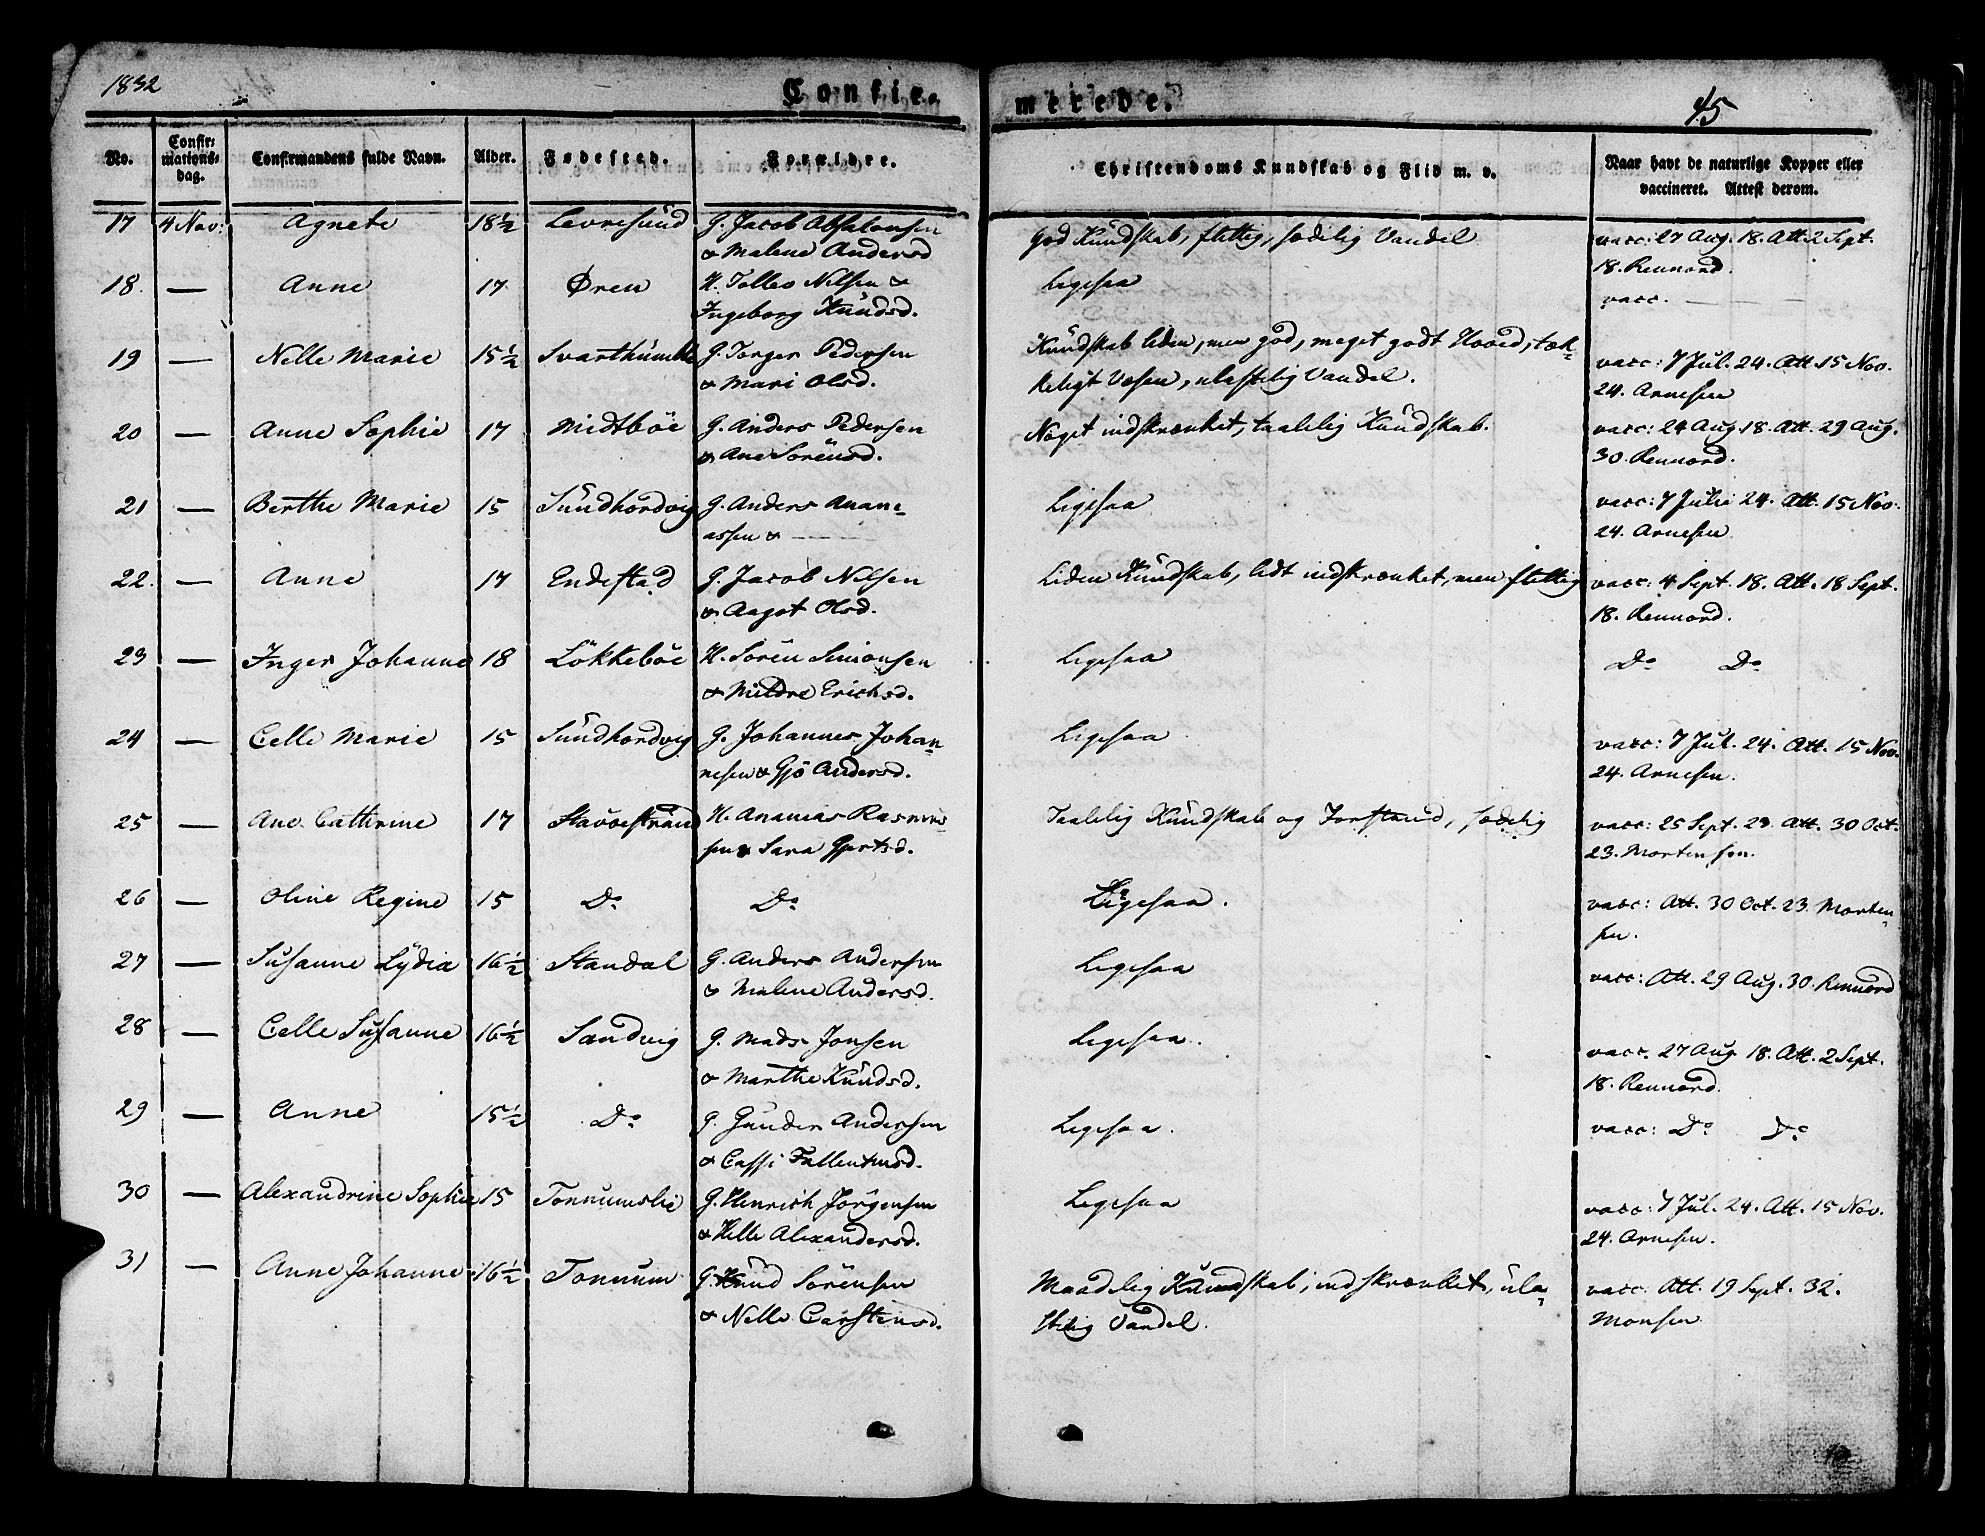 1832
Confir-
merede.
45
No.
Confir-
mations-
dag.
Confirmandens fulde Navn.
Alder.
Fødested.
Forældre.
Christendoms Kundskab og Flid m. v.
Naar havt de naturlige Kopper eller
vaccineret. Attest derom.
17 4 Nov: Agnete 18½ Levresund G. Jacob Absalonsen God Kundskab, flittig, sædelig Vandel vacc: 27 Aug. 18. Att. 2 Sept.
& Malene Andersd 18. Rennord.
18. — Anne 17 Øren H. Tolles Nilsen & Ligesaa vacc. — — —
Ingeborg Knudsd.
19 — Nelle Marie 15½ Svarthumle G. Torger Pedersen Kundskab liden, men god, meget godt Hoved, tæk-
& Mari Olsd. keligt Væsen, ulastelig Vandel. vacc: 7 Jul. 24. Att. 15 Nov.
24. Arnesen
20 — Anne Sophie 17 Midtböe G. Anders Pedersen Noget indskrænket, taalelig Kundskab. vacc: 24 Aug 18. Att. 29 Aug.
& Ane Sörensd. 30. Rennord.
21 — Berthe Marie 15 Sundhordvig G. Anders Anani- Ligesaa vacc: 7 Julii 24. Att. 15 Nov.
assen & — 24. Arnesen
22. — Anne 17 Endestad G. Jacob Nilsen Liden Kundskab, lidt indskrænket, men flittig vacc: 4 Sept. 18. Att. 18 Sept.
& Aagot Olsd. 18. Rennord.
23 — Inger Johanne 18 Lökkeböe H. Sören Simonsen Ligesaa Do Do
& Mildre Erichsd.
24 — Celle Marie 15 Sundhordvig G. Johannes Johan- Ligesaa vacc: 7 Jul. 24. Att. 15 Nov.
nesen & Gjö Andersd. 24. Arnesen.
25 — Ane Cathrine 17 Stavoestrand H. Ananias Rasmus- Taalelig Kundskab og Forstand, sædelig vacc: 25 Sept. 23. Att. 30 Oct.
sen & Sara Gjertsd. 23. Mortensen.
26 — Oline Regine 15 Do Do Ligesaa. vacc: Att. 30 Oct. 23. Morten-
sen.
27 — Susanne Lydia 16½ Standal G. Anders Andersen Ligesaa vacc: Att. 29 Aug. 30. Rennord
& Malene Andersd.
28 — Celle Susanne 16½ Sandvig G. Mads Jonsen Ligesaa. vacc. 27 Aug 18. Att. 2 Sept.
& Marthe Knudsd. 18. Rennord.
29 — Anne 15½ Do G. Gunder Andersen Ligesaa. vacc: Do Do
& Cassi Fallentinsd.
30 — Alexandrine Sophie 15 Tonnumslie G. Henrich Jörgensen Ligesaa vacc: 7 Jul. 24. Att. 15 Nov.
& Helle Alexandersd. 24. Arnesen.
31 — Anne Johanne 16½ Tonnum G. Knud Sörensen Maadelig Kundskab, indskrænket, ula- vacc. Att. 19 Sept. 32.
& Nelle Carstensd. stelig Vandel. Monsen